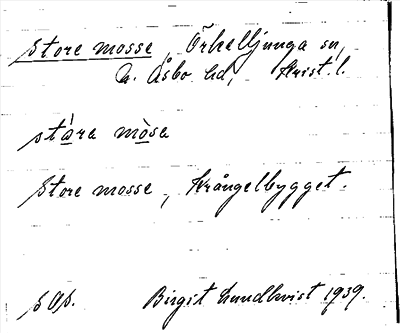 Store mosse, Örkelljunga sn,
N. Åsbo hd, Krist. l.
stóra mòsa
Store mosse, Krångelbygget.
s Op. Birgit Lundkvist 1939.